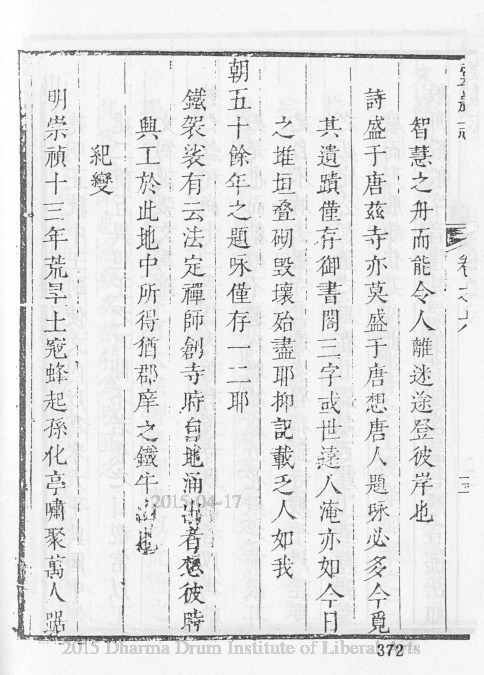 靈巖志
卷之六
十三
智慧之舟而能令人離迷途登彼岸也
詩盛于唐茲寺亦莫盛于唐想唐人題咏必多今覓
其遺蹟僅存御書閣三字或世遠人淹亦如今日
之堆垣叠砌毀壞殆盡耶抑記載乏人如我
朝五十餘年之題咏僅存一二耶
鐵袈裟有云法定禪師創寺時自地涌出者想彼時
興工於此地中所得猶郡庠之鐵牛
紀變
明崇禎十三年荒旱土宼蜂起孫化亭嘯聚萬人踞
2015-04-17
2015 Dharma Drum Institute of Liberal Arts
372